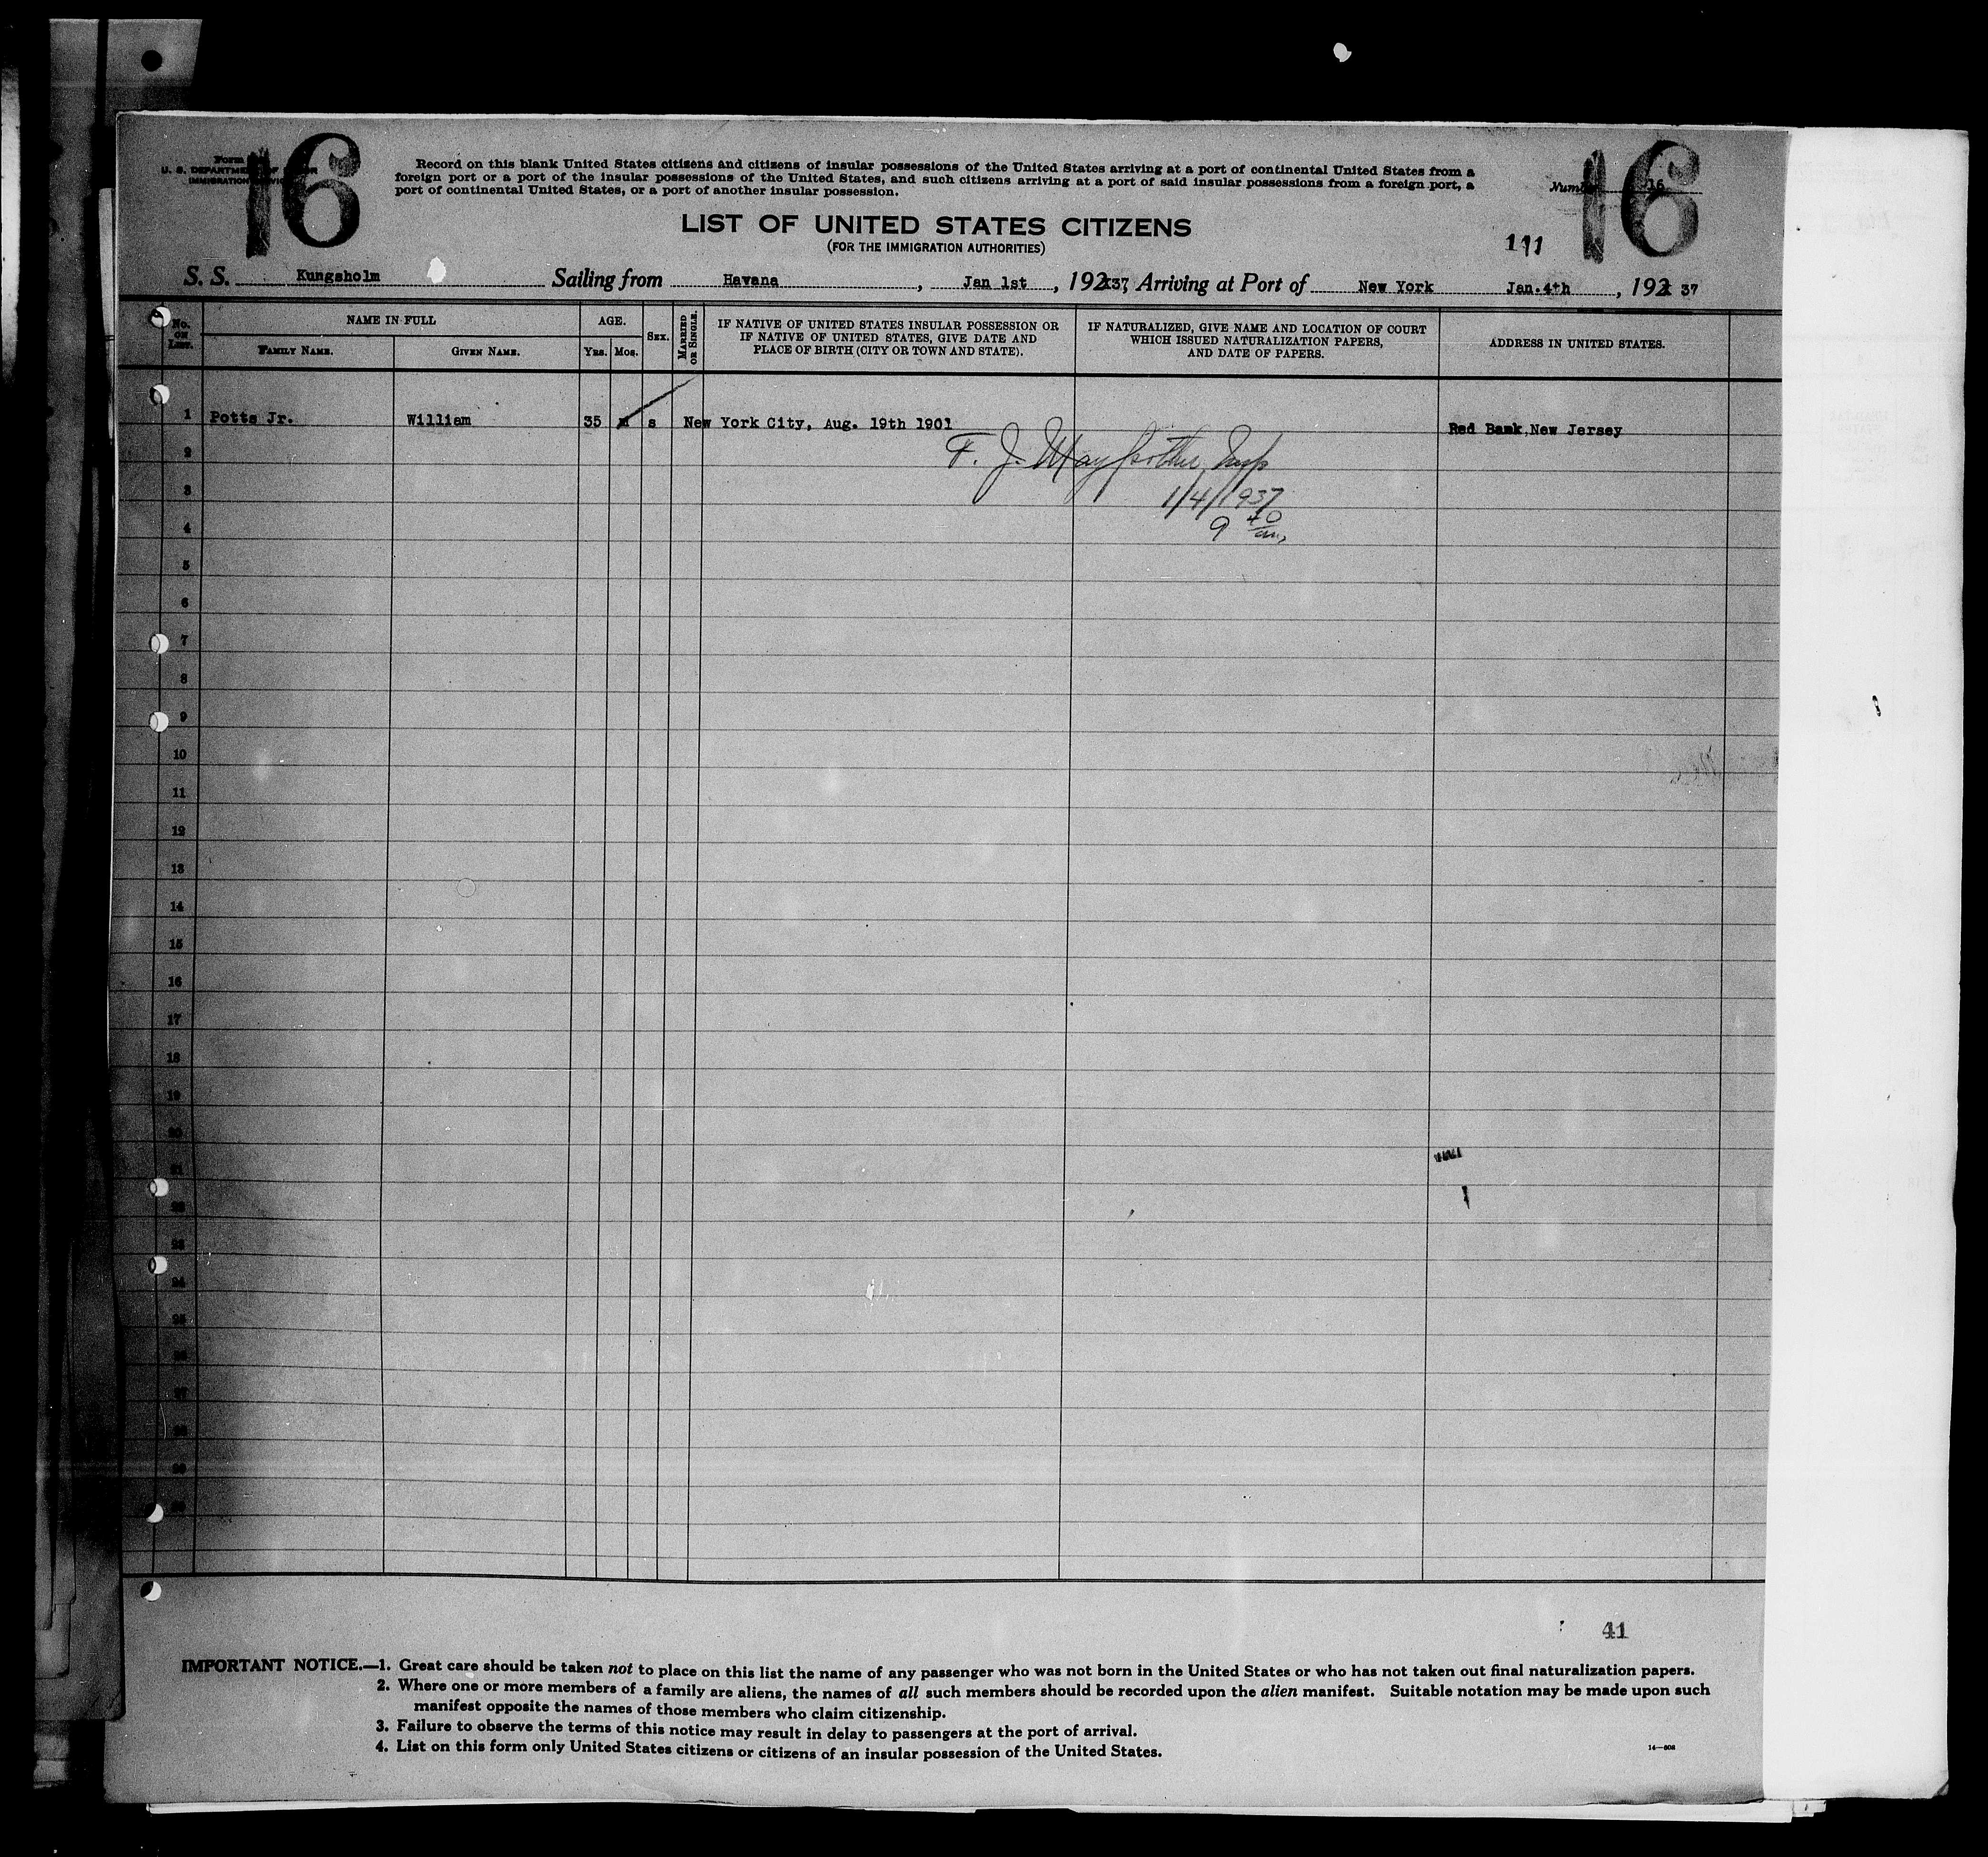 16
Form
U. S. DEPARTMENT OF LABOR
IMMIGRATION SERVICE
Record on this blank United States citizens and citizens of insular possessions of the United States arriving at a port of continental United States from a
foreign port or a port of the insular possessions of the United States, and such citizens arriving at a port of said insular possessions from a foreign port, a
port of continental United States, or a port of another insular possession.
Number 16
16
LIST OF UNITED STATES CITIZENS
(FOR THE IMMIGRATION AUTHORITIES)
111
S. S. Kungsholm Sailing from Havana, Jan 1st, 192x37, Arriving at Port of New York Jan. 4th, 192x 37
No. on List.
NAME IN FULL
Family Name.
Given Name.
AGE.
Yrs. Mos.
Sex.
Married or Single.
IF NATIVE OF UNITED STATES INSULAR POSSESSION OR
IF NATIVE OF UNITED STATES, GIVE DATE AND
PLACE OF BIRTH (CITY OR TOWN AND STATE).
IF NATURALIZED, GIVE NAME AND LOCATION OF COURT
WHICH ISSUED NATURALIZATION PAPERS,
AND DATE OF PAPERS.
ADDRESS IN UNITED STATES.
1 Potts Jr. William 35 M s New York City, Aug. 19th 1901 Red Bank, New Jersey
2
F. J.
3
1/4/1937
4
9 40 am,
5
6
7
8
9
10
11
12
13
14
15
16
17
18
19
20
21
22
23
24
25
26
27
28
29
30
41
IMPORTANT NOTICE.—1. Great care should be taken not to place on this list the name of any passenger who was not born in the United States or who has not taken out final naturalization papers.
2. Where one or more members of a family are aliens, the names of all such members should be recorded upon the alien manifest. Suitable notation may be made upon such
manifest opposite the names of those members who claim citizenship.
3. Failure to observe the terms of this notice may result in delay to passengers at the port of arrival.
4. List on this form only United States citizens or citizens of an insular possession of the United States.
14—608